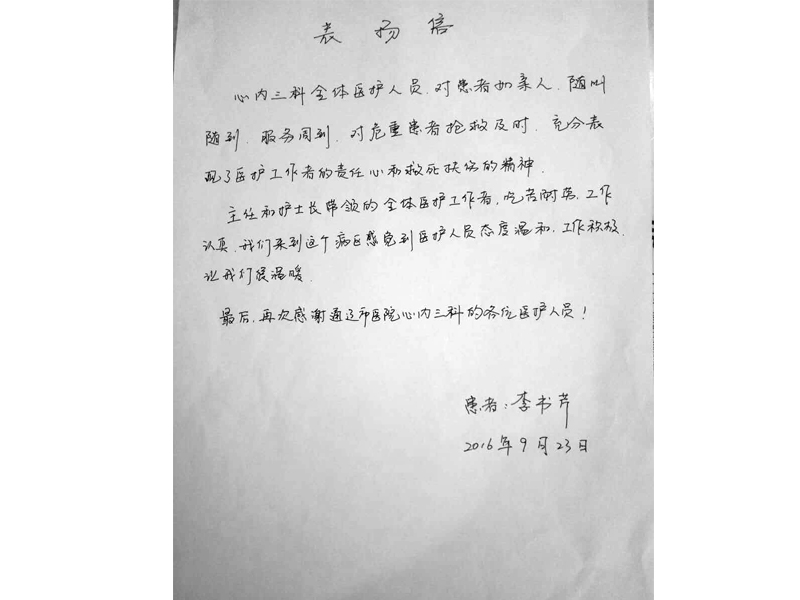 表扬信
心内三科全体医护人员，对患者如亲人，随叫
随到，服务周到，对危重患者抢救及时，充分表
现了医护工作者的责任心和救死扶伤的精神．
主任和护士长带领的全体医护工作者，吃苦耐劳，工作
认真，我们来到这个病区感觉到医护人员态度温和，工作积极，
让我们很温暖．
最后，再次感谢通辽市医院心内三科的各位医护人员！
患者：李书芹
2016年9月23日